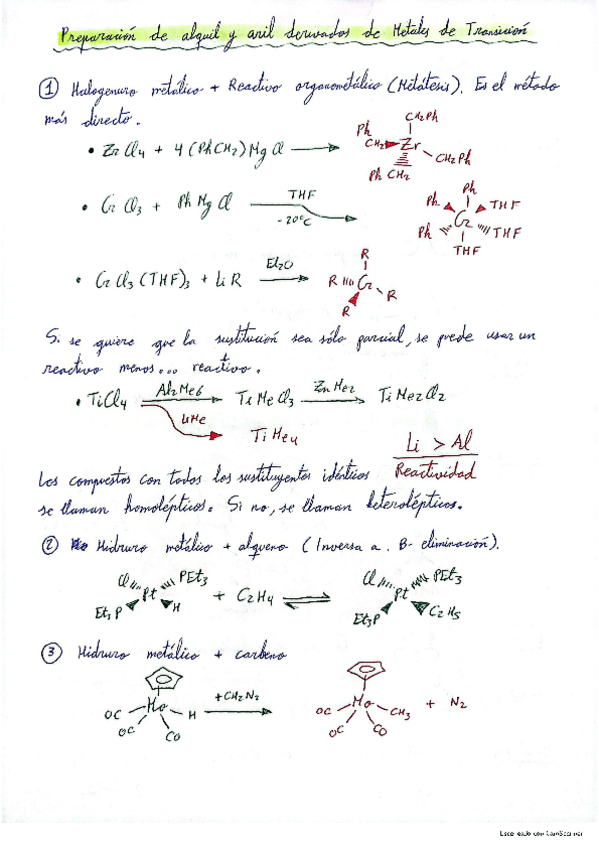 Preparación de alquil y aril derivados de Metales de Transición
① Halogenuro metálico + Reactivo organometálico (Metátesis). Es el método
más directo.
• ZrCl4 + 4 (PhCH2)MgCl → Ph CH2 CH2Ph Zr CH2Ph PhCH2
• CrCl3 + PhMgCl THF -20ºC → Ph Ph Ph Cr THF THF THF
• CrCl3(THF)3 + LiR Et2O → R R Cr R R
Si se quiere que la sustitución sea sólo parcial, se puede usar un
reactivo menos... reactivo.
• TiCl4 Al2Me6 → TiMeCl3 ZnMe2 → TiMe2Cl2
LiMe → TiMe4
Li > Al
Reactividad
Los compuestos con todos los sustituyentes idénticos
se llaman homolépticos. Si no, se llaman heterolépticos.
② Hidruro metálico + alqueno (Inversa a β-eliminación).
Cl PEt3 Pt Et3P H + C2H4 ⇌ Cl PEt3 Pt Et3P C2H5
③ Hidruro metálico + carbeno
Mo OC H OC CO +CH2N2 → Mo OC CH3 OC CO + N2
Escaneado con CamScanner